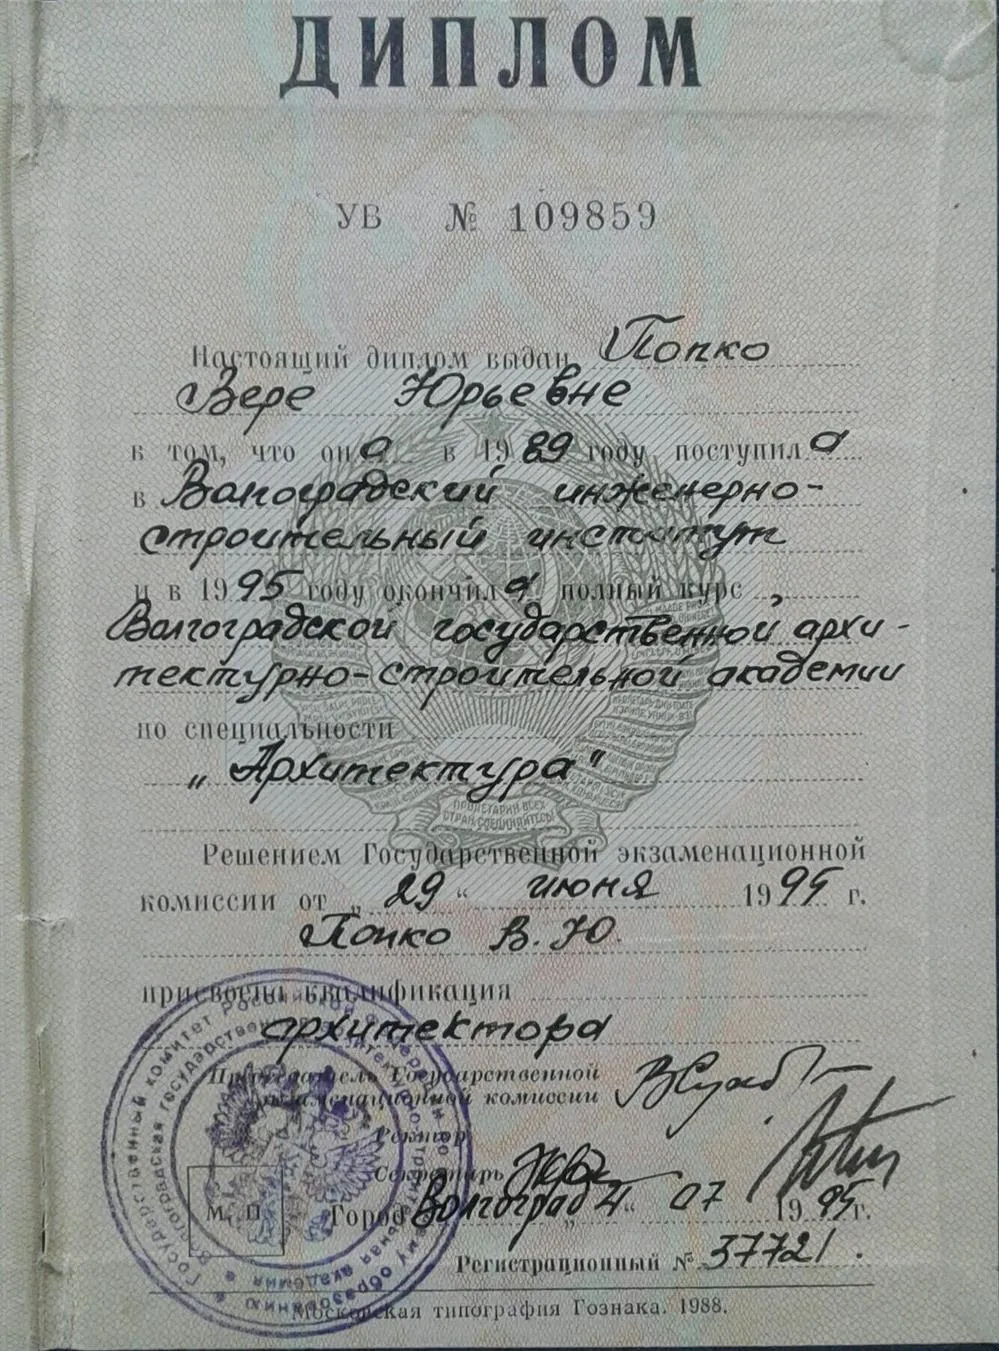 ДИПЛОМ
УВ № 109859
Настоящий диплом выдан Попко
Вере Юрьевне
в том, что она в 1989 году поступила
в Волгоградский инженерно-
строительный институт
и в 1995 году окончила полный курс,
Волгоградской государственной архи-
тектурно-строительной академии
по специальности
„Архитектура"
ПРОЛЕТАРИИ ВСЕХ
СТРАН, СОЕДИНЯЙТЕСЬ!
Решением Государственной экзаменационной
комиссии от „29" июня 1995 г.
Попко В. Ю.
присвоена квалификация
архитектора
Председатель Государственной
экзаменационной комиссии
Ректор
Секретарь
М. П. Город Волгоград 07 1995 г.
Регистрационный № 37721.
Московская типография Гознака. 1988.